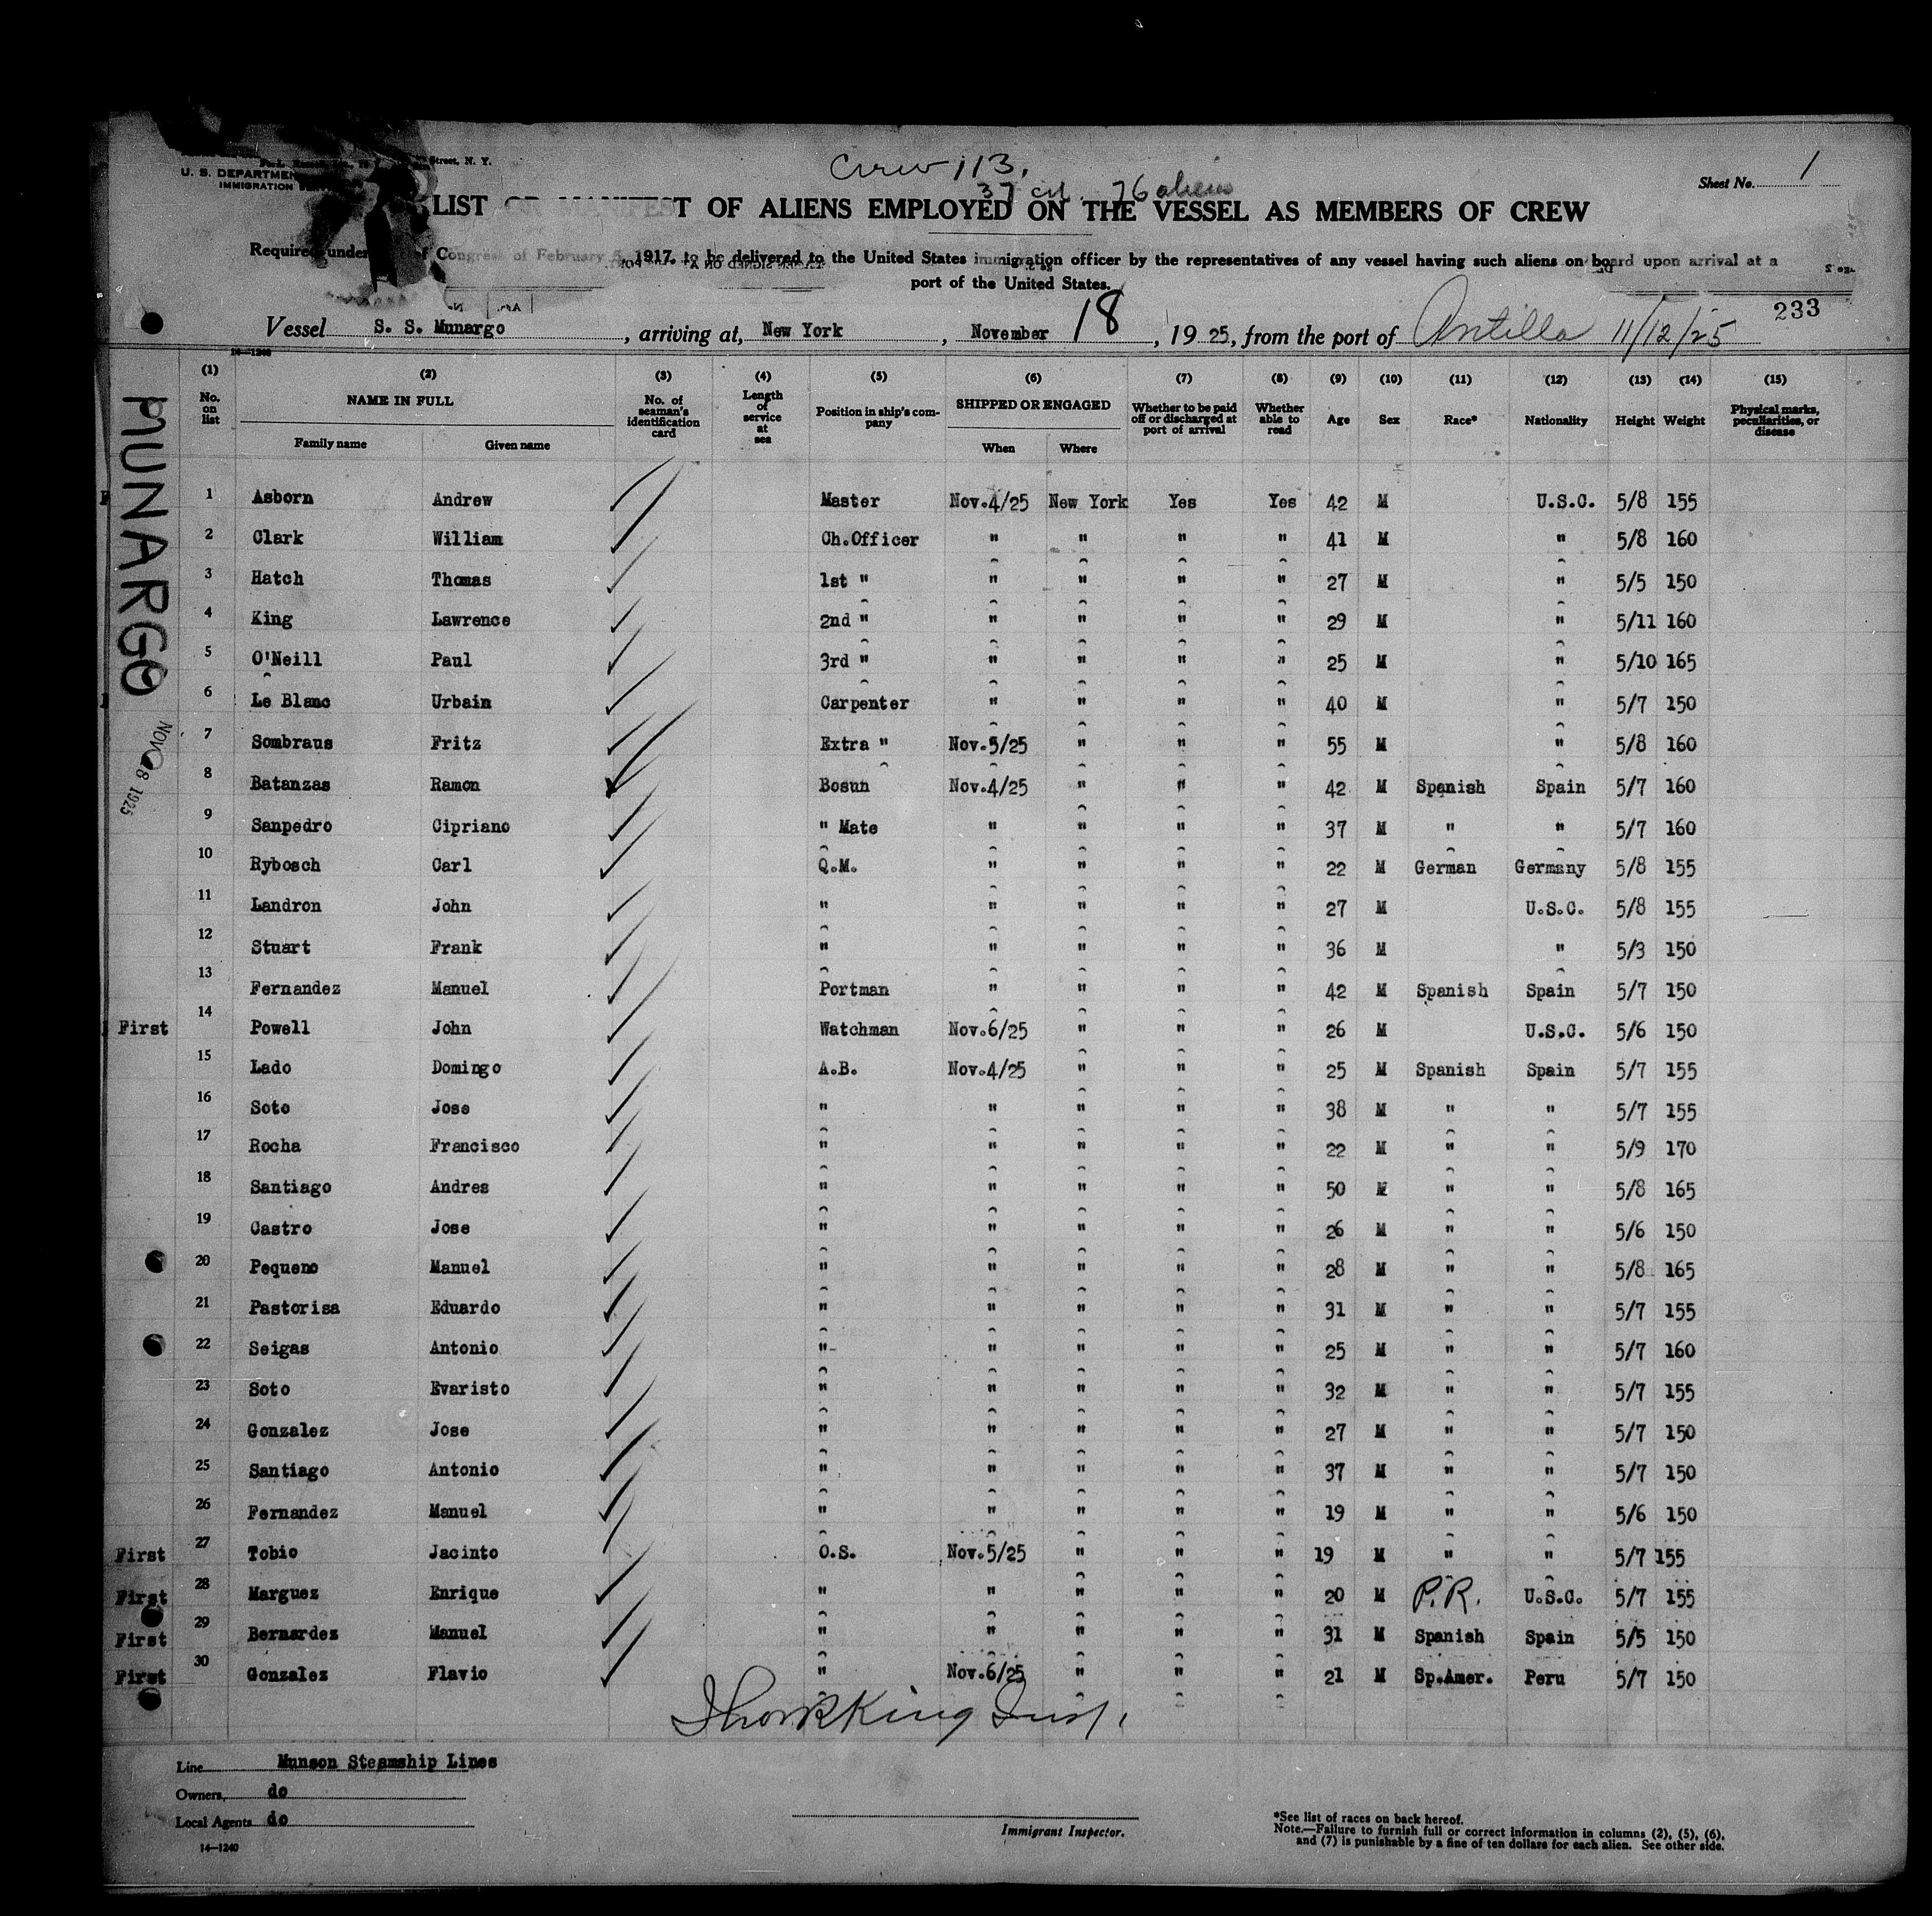 Crew 113.
37 cit. 76 aliens
Street, N. Y.
U. S. DEPARTMEN
IMMIGRATION
Sheet No. 1
LIST OR MANIFEST OF ALIENS EMPLOYED ON THE VESSEL AS MEMBERS OF CREW
Required under of Congress of February 5, 1917, to be delivered to the United States immigration officer by the representatives of any vessel having such aliens on board upon arrival at a
port of the United States.
233
Vessel S. S. Munargo, arriving at, New York, November 18, 1925, from the port of Antilla 11/12/25
14-1240
(1) (2) (3) (4) (5) (6) (7) (8) (9) (10) (11) (12) (13) (14) (15)
No. on list NAME IN FULL Family name Given name No. of seaman's identification card Length of service at sea Position in ship's company SHIPPED OR ENGAGED When Where Whether to be paid off or discharged at port of arrival Whether able to read Age Sex Race* Nationality Height Weight Physical marks, peculiarities, or disease
MUNARGO
NOV 18 1925
1 Asborn Andrew Master Nov.4/25 New York Yes Yes 42 M U.S.C. 5/8 155
2 Clark William Ch.Officer " " " " 41 M " 5/8 160
3 Hatch Thomas 1st " " " " " 27 M " 5/5 150
4 King Lawrence 2nd " " " " " 29 M " 5/11 160
5 O'Neill Paul 3rd " " " " " 25 M " 5/10 165
6 Le Blanc Urbain Carpenter " " " " 40 M " 5/7 150
7 Sombraus Fritz Extra " Nov.5/25 " " " 55 M " 5/8 160
8 Batanzas Ramon Bosun Nov.4/25 " " " 42 M Spanish Spain 5/7 160
9 Sanpedro Cipriano " Mate " " " " 37 M " " 5/7 160
10 Rybosch Carl Q.M. " " " " 22 M German Germany 5/8 155
11 Landron John " " " " " 27 M U.S.C. 5/8 155
12 Stuart Frank " " " " " 36 M " 5/3 150
13 Fernandez Manuel Portman " " " " 42 M Spanish Spain 5/7 150
First 14 Powell John Watchman Nov.6/25 " " " 26 M U.S.C. 5/6 150
15 Lado Domingo A.B. Nov.4/25 " " " 25 M Spanish Spain 5/7 155
16 Soto Jose " " " " " 38 M " " 5/7 155
17 Rocha Francisco " " " " " 22 M " " 5/9 170
18 Santiago Andres " " " " " 50 M " " 5/8 165
19 Castro Jose " " " " " 26 M " " 5/6 150
20 Pequeno Manuel " " " " " 28 M " " 5/8 165
21 Pastorisa Eduardo " " " " " 31 M " " 5/7 155
22 Seigas Antonio "- " " " " 25 M " " 5/7 160
23 Soto Evaristo " " " " " 32 M " " 5/7 155
24 Gonzalez Jose " " " " " 27 M " " 5/7 150
25 Santiago Antonio " " " " " 37 M " " 5/7 150
26 Fernandez Manuel " " " " " 19 M " " 5/6 150
First 27 Tobio Jacinto O.S. Nov.5/25 " " " 19 M " " 5/7 155
First 28 Marguez Enrique " " " " " 20 M P.R. U.S.C. 5/7 155
First 29 Bernardez Manuel " " " " " 31 M Spanish Spain 5/5 150
First 30 Gonzalez Flavio " Nov.6/25 " " " 21 M Sp.Amer. Peru 5/7 150
King Insp.
Line Munson Steamship Lines
Owners, do
Local Agents do
14-1240
Immigrant Inspector.
*See list of races on back hereof.
Note.—Failure to furnish full or correct information in columns (2), (5), (6),
and (7) is punishable by a fine of ten dollars for each alien. See other side.